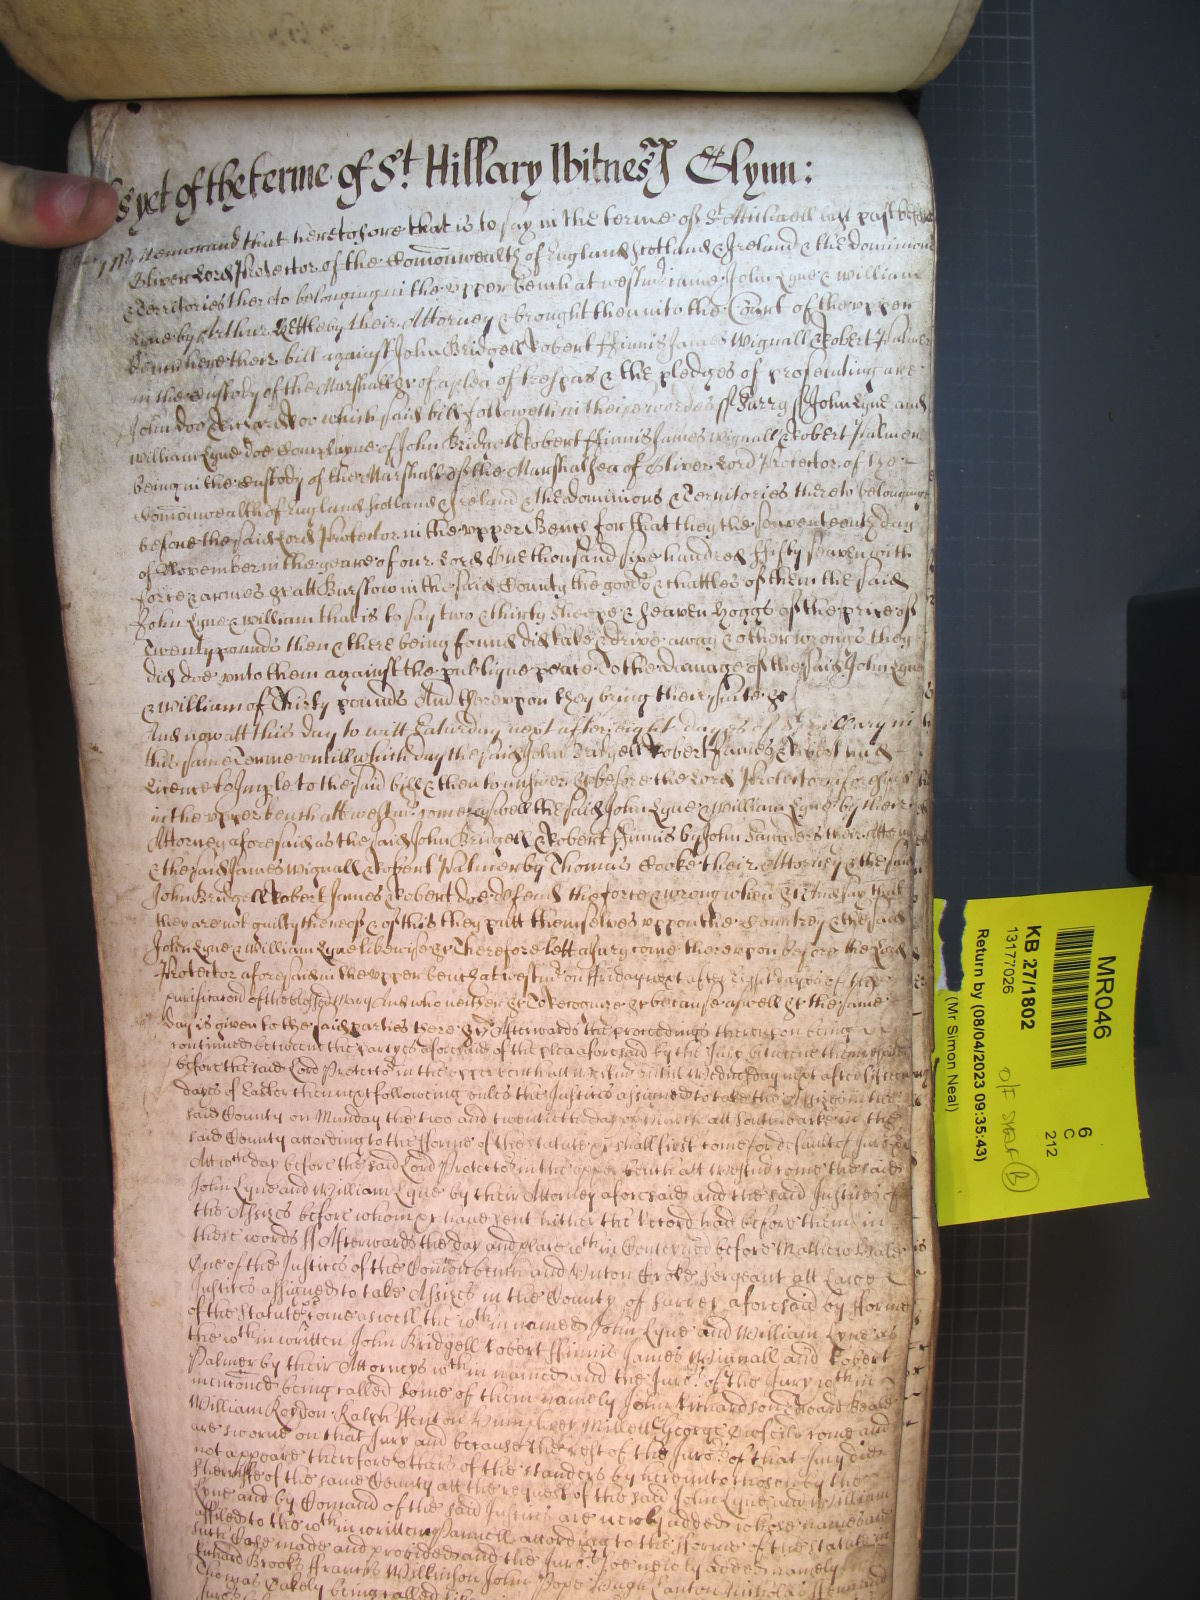 As yet of the terme of St. Hillary Witness Glynn:
Memorand that heretofore that is to say in the terme of St. Michaell last past before
Oliver Lord Protector of the Comonwealth of England Scotland & Ireland & the dominions
& Territories thereto belonging in the upper bench at westmr came John Lyne & William
Lyne by Arthur Kettleby their Attorney & brought then into the Court of the upper
bench here their bill against John Bridgell Robert ffinnis James Wignall & Robert Palmer
in the Custody of the Marshall &c of a plea of trespas & the pledges of prosecuting are
John doo & Richard roo which said bill followeth in these wordes ss Surry ss John Lyne and
William Lyne doe Complayne of John Bridgell Robert ffinnis James Wignall & Robert Palmer
being in the custody of the Marshall of the Marshalsea of Oliver Lord Protector of the
Comonwealth of England Scotland & Ireland & the dominions & Territories thereto belonging
before the said Lord Protector in the upper Bench for that they the seventeenth day
of November in the yeare of our Lord One thousand six hundred ffifty seaven with
force & armes &c att Burstow in the said County the goods & chattles of them the said
John Lyne & William that is to say two & thirty sheepe & seaven hoggs of the price of
Twenty pounds then & there being found did take & drive away & other wrongs they
did doe unto them against the publique peace To the damage of the said John Lyne
& William of Thirty pounds And thereupon they bring their suite &c
And now att this day to witt Saturday next after eight dayes of St Hillary in
this same Terme untill which day the said John Bridgell Robert James & Robert had
Licence to Imple to the said bill & then to answer &c before the Lord Protector aforesaid
in the upper bench att westmr come aswell the said John Lyne & William Lyne by their
Attorney aforesaid as the said John Bridgell & Robert ffinnis by John Saunders their Attorney
& the said James Wignall & Robert Palmer by Thomas Cooke their Attorney & the said
John Bridgell Robert James & Robert doe defend the force & wrong when &c And say that
they are not guilty thereof & of this they putt themselves uppon the Countrey & the said
John Lyne & William Lyne likewise &c Therefore lett a Jury come thereupon before the Lord
Protector aforesaid in the upper bench at westmr on ffriday next after Eight dayes of the
purificacon of the blessed Mary And who neither &c To Recognize &c because aswell &c the same
day is given to the said parties there &c Afterwards the proceedings thereupon being
continued betweene the partyes aforesaid of the plea aforesaid by the Jury betweene them
before the said Lord Protector in the upper bench att Westmr untill Wednesday next after fifteen
dayes of Easter then next following unles the Justices assigned to take the Assizes in the
said County on Munday the two and twentith day of March att Southwarke in the
said County according to the fforme of the statute &c shall first come for default of Jurors &c
Att wch day before the said Lord Protector in the upper bench att Westmr come the said
John Lyne and William Lyne by their Attorney aforesaid and the said Justices of
the Assizes before whom &c have sent hither the Record had before them in
these words ss Afterwards the day and place wth in Conteyned before Mathew Hale
One of the Justices of the Comon bench and Unton Croke Sergeant att Lawe
Justices assigned to take Assizes in the County of Surrey aforesaid by fforme
of the Statute &c come aswell the wth in named John Lyne and William Lyne as
the wth in written John Bridgell Robert ffinnis James Wignall and Robert
Palmer by their Attorneys wth in named and the Jurors of the Jury wth in
mentioned being called some of them namely John Richardson Edward Beale
William Roydon Ralph ffenton Humphrey Millett George come and
are sworne on that Jury and because the rest of the Jurors of that Jury did
not appeare therefore others of the standers by hereunto chosen by the
Sherriffe of the same County att the request of the said John Lyne and William
Lyne and by Comand of the said Justices are newly added whose names are
affiled to the wth in written Pannell according to the fforme of the statute in
such Case made and provided and the Jurors soe newly added namely
Richard Brookes ffrancis Wilkinson John Pope Hugh Canton Nicholas
Thomas Oakely being called
MR046
KB 27/1802
13177026
Return by (08/04/2023 09:35:43)
(Mr Simon Neal)
6
C
212
B